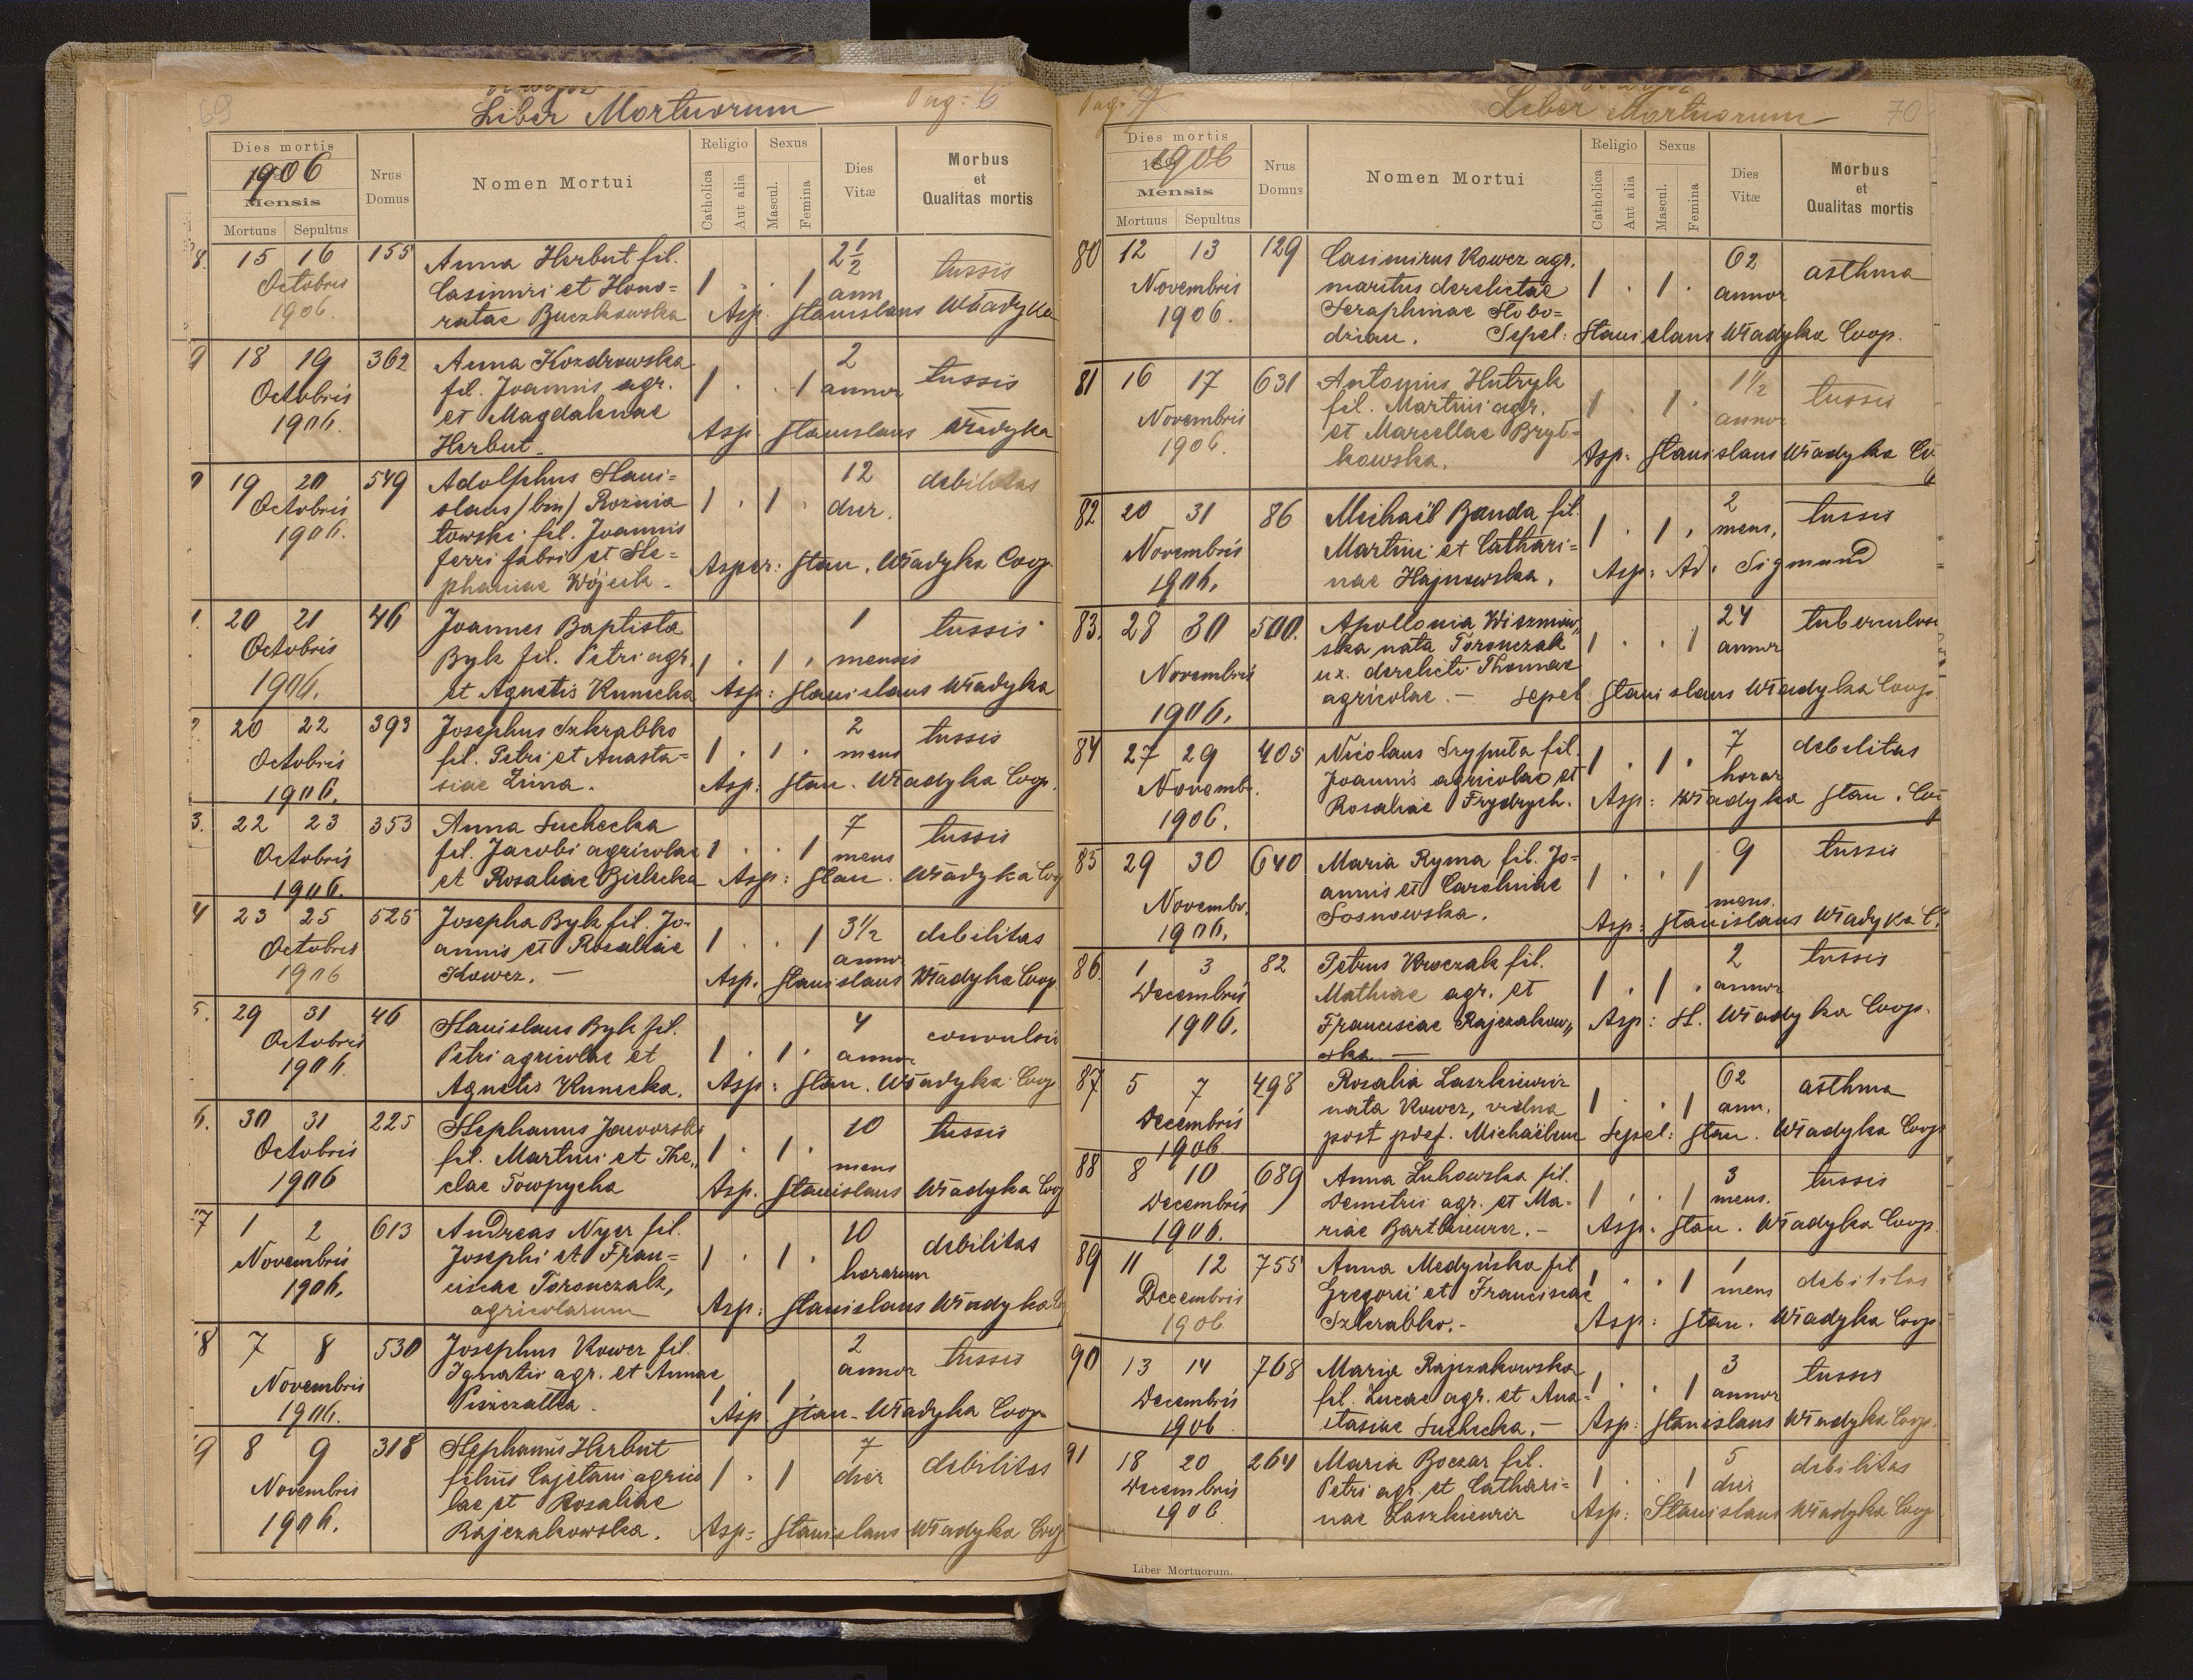 69
Liber Mortuorum
Pag: 6
Dies mortis
1906
Mensis
Mortuus Sepultus
Nrus Domus
Nomen Mortui
Religio
Catholica
Aut alia
Sexus
Mascul.
Femina
Dies Vitæ
Morbus
et
Qualitas mortis
8. 15 16 155 Anna Herbut fil. 2 1/2 tussis
Octobris Casimiri et Hono= 1 . . 1 ann
1906. ratae Buczkowska Asp. Stanislaus Władyka
9 18 19 362 Anna Kozdrowska 2 tussis
Octobris fil. Joannis agr. 1 . . 1 annor
1906. et Magdalenae
Herbut. Asp Stanislaus Władyka
19 20 549 Adolphus Stani= 12 debilitas
Octobris slaus /bin/ Roznia 1 . 1 . dier.
1906. towski fil. Joannis
ferri fabri et Ste=
phaniae Wójcik. Asper: Stan. Władyka Coop.
1. 20 21 46 Joannes Baptista 1 tussis
Octobris Byk fil. Petri agr. 1 . 1 . mensis
1906. et Agnetis Kunecka Asp: Stanislaus Władyka
2. 20 22 393 Josephus Szkrabko 2 tussis
Octobris fil. Petri et Anasta= 1 . 1 . mens
1906. siae Zima. Asp: Stan. Władyka Coop.
3. 22 23 353 Anna Suchecka 7 tussis
Octobris fil. Jacobi agricolae 1 . . 1 mens
1906. et Rosaliae Bielecka Asp: Stan. Władyka Coop
4 23 25 525 Josepha Byk fil. Jo= 3 1/2 debilitas
Octobris annis et Rosaliae 1 . . 1 annor
1906 Kowcz. — Asp. Stanislaus Władyka Coop
5. 29 31 46 Stanislaus Byk fil. 4 convulsio
Octobris Petri agricolae et 1 . 1 . annor
1906. Agnetis Kunecka. Asp: Stan. Władyka Coop
6. 30 31 225 Stephanus Jaworski 10 tussis
Octobris fil. Martini et The„ 1 . 1 . mens
1906 clae Towpycha Asp. Stanislaus Władyka Coop
77 1 2 613 Andreas Nyer fil. 10 debilitas
Novembris Josephi et Fran= 1 . 1 . horarum
1906. ciscae Toronczak,
agricolarum Asp: Stanislaus Władyka
8 7 8 530 Josephus Kowcz fil. 2 tussis
Novembris Ignatii agr. et Annae 1 1 annor
1906. Piszczatka. Asp Stan. Władyka Coop.
9 8 9 318 Stephanus Herbut 7 debilitas
Novembris filius Cajetani agrico 1 . 1 dier
1906. lae et Rosaliae
Rajczakowska. Asp: Stanislaus Władyka Coop
Pag. 7
Liber Mortuorum
70
Dies mortis
1906
Mensis
Mortuus Sepultus
Nrus Domus
Nomen Mortui
Religio
Catholica
Aut alia
Sexus
Mascul.
Femina
Dies Vitæ
Morbus
et
Qualitas mortis
80 12 13 129 Casimirus Kowcz agr. 62 asthma
Novembris maritus derelictae 1 . 1 . annor
1906. Seraphinae Słobo=
dzian. Sepel: Stanislaus Władyka Coop.
81 16 17 631 Antonius Hutryk 1 1/2 tussis
Novembris fil. Martini agr. 1 . 1 . annor
1906. et Marcellae Bryt=
kowska. Asp: Stanislaus Władyka Co
82 20 31 86 Michaël Banda fil. 2 tussis
Novembris Martini et Cathari= 1 . 1 . mens.
1906. nae Hajnowska. Asp: Ad. Sigmund
83. 28 30 500. Apollonia Wiszniow„ 24 tuberculosi
Novembris ska nata Toronczak 1 . . 1 annor
1906. ux. derelicti Thomae
agricolae. — Sepel: Stanislaus Władyka Coop.
84 27 29 405 Nicolaus Sryputa fil. 7 debilitas
Novemb. Joannis agricolae et 1 . 1 . horar
1906. Rosaliae Frydrych. Asp: Władyka Stan. Coo
85 29 30 640 Maria Ryma fil. Jo= 9 tussis
Novembr. annis et Carolinae 1 . . 1 mens.
1906. Sosnowska. Asp: Stanislaus Władyka C.
86. 1 3 82 Petrus Kroczak fil. 2 tussis
Decembris Mathiae agr. et 1 . 1 . annor
1906. Franciscae Rajczakow„ Asp: St. Władyka Coop.
ska. —
87 5 7 498 Rosalia Laszkiewicz 62 asthma
Decembris nata Kowcz, vidua 1 . . 1 ann.
1906 post pdef. Michaëlem Sepel: Stan. Władyka Coop
88 8 10 689 Anna Łukowska fil. 3 tussis
Decembris Demetrii agr. et Ma= 1 . . 1 mens.
1906. riae Bartkiewicz. — Asp. Stan. Władyka Coop.
89 11 12 755 Anna Medyńska fil 1 debilitas
Decembris Gregorii et Franciscae 1 . . 1 mens
1906 Szkrabko. - Asp: Stan. Władyka Coop
90 13 14 768 Maria Rajczakowska 3 tussis
Decembris fil. Lucae agr. et Ana= 1 . . 1 annor
1906 stasiae Suchecka. — Asp: Stanislaus Władyka Coop.
91 18 20 264 Maria Boczar fil. 5 debilitas
Decembris Petri agr. et Cathari= 1 . . 1 dier
1906. nae Laszkiewicz Asp: Stanislaus Władyka Coop
Liber Mortuorum.